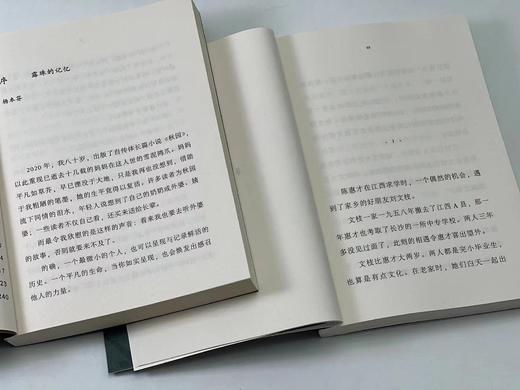 序 露珠的记忆
杨本芬
2020 年，我八十岁，出版了自传体长篇小说《秋园》，
以此重现已逝去十几载的妈妈在这人世的雪泥鸿爪。妈妈
平凡如草芥，早已湮没于大地，只是我再也没想到，借助
于我粗陋的笔墨，她的生平竟得以复活。许多读者为秋园
流下同情的泪水，年轻人说想到了自己的奶奶或外婆，姨
婆，一些读者不仅自己看，还买来送给长辈。
而最令我欣慰的是这样的声音：看来我也要去听外婆
的故事，否则就要来不及了。
的确，一个最微小的个人，也可以呈现与记录鲜活的
历史。一个平凡的生命，当你如实呈现，也会焕发出感召
他人的力量。
4
7
23
240
1
陈惠才在江西求学时，一个偶然的机会，遇
到了家乡的好朋友刘文枝。
文枝一家一九五八年搬去了江西 A 县，那一
年惠才也考取了长沙的一所中专学校。两人三年
多没见过面了，此刻的相遇令惠才喜出望外。
文枝比惠才大两岁。两人都是吴小毕业生，
也算是有点文化。在老家时，她们白天一起出